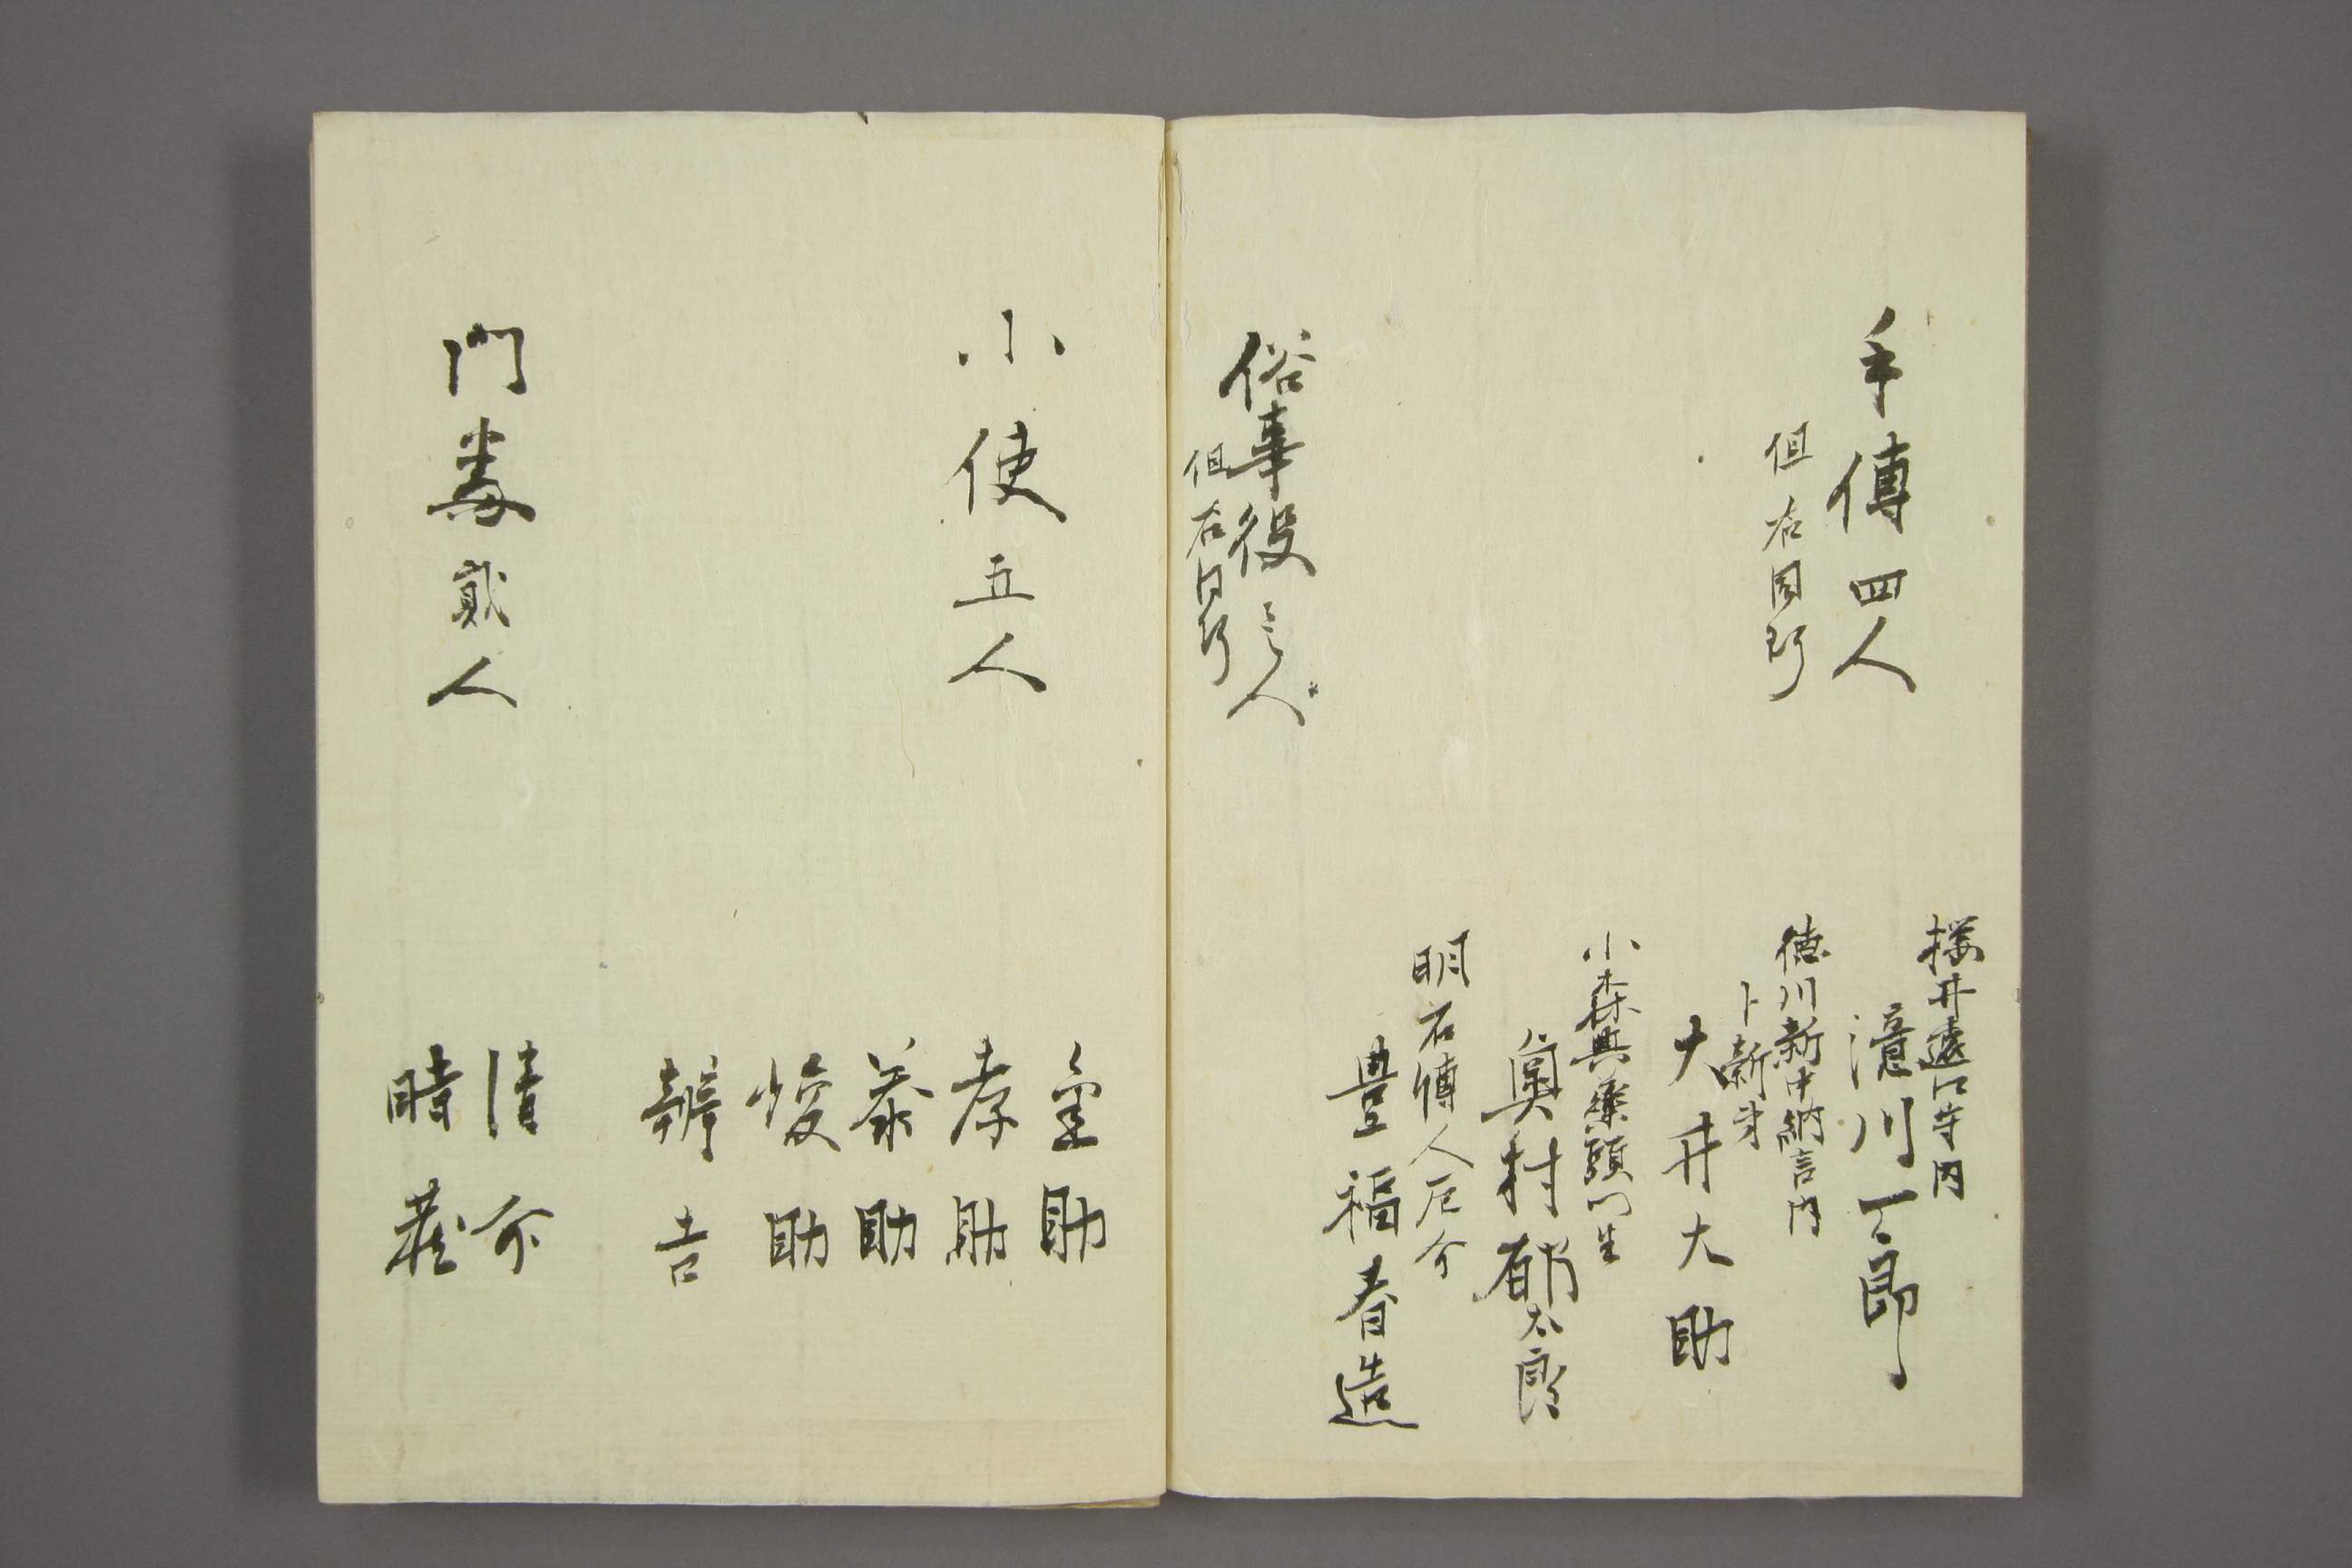 手傳四人
但右同断
櫻井遠江守内
澺川一郎
徳川新中納言内
卜新弟
大井大助
小森典藥頭門生
奥村郁太郎
明石博人厄介
豊福春造
俗事役三人
但右同断
小使五人
金助
孝助
泰助
俊助
辨吉
門番貮人
清介
時藏